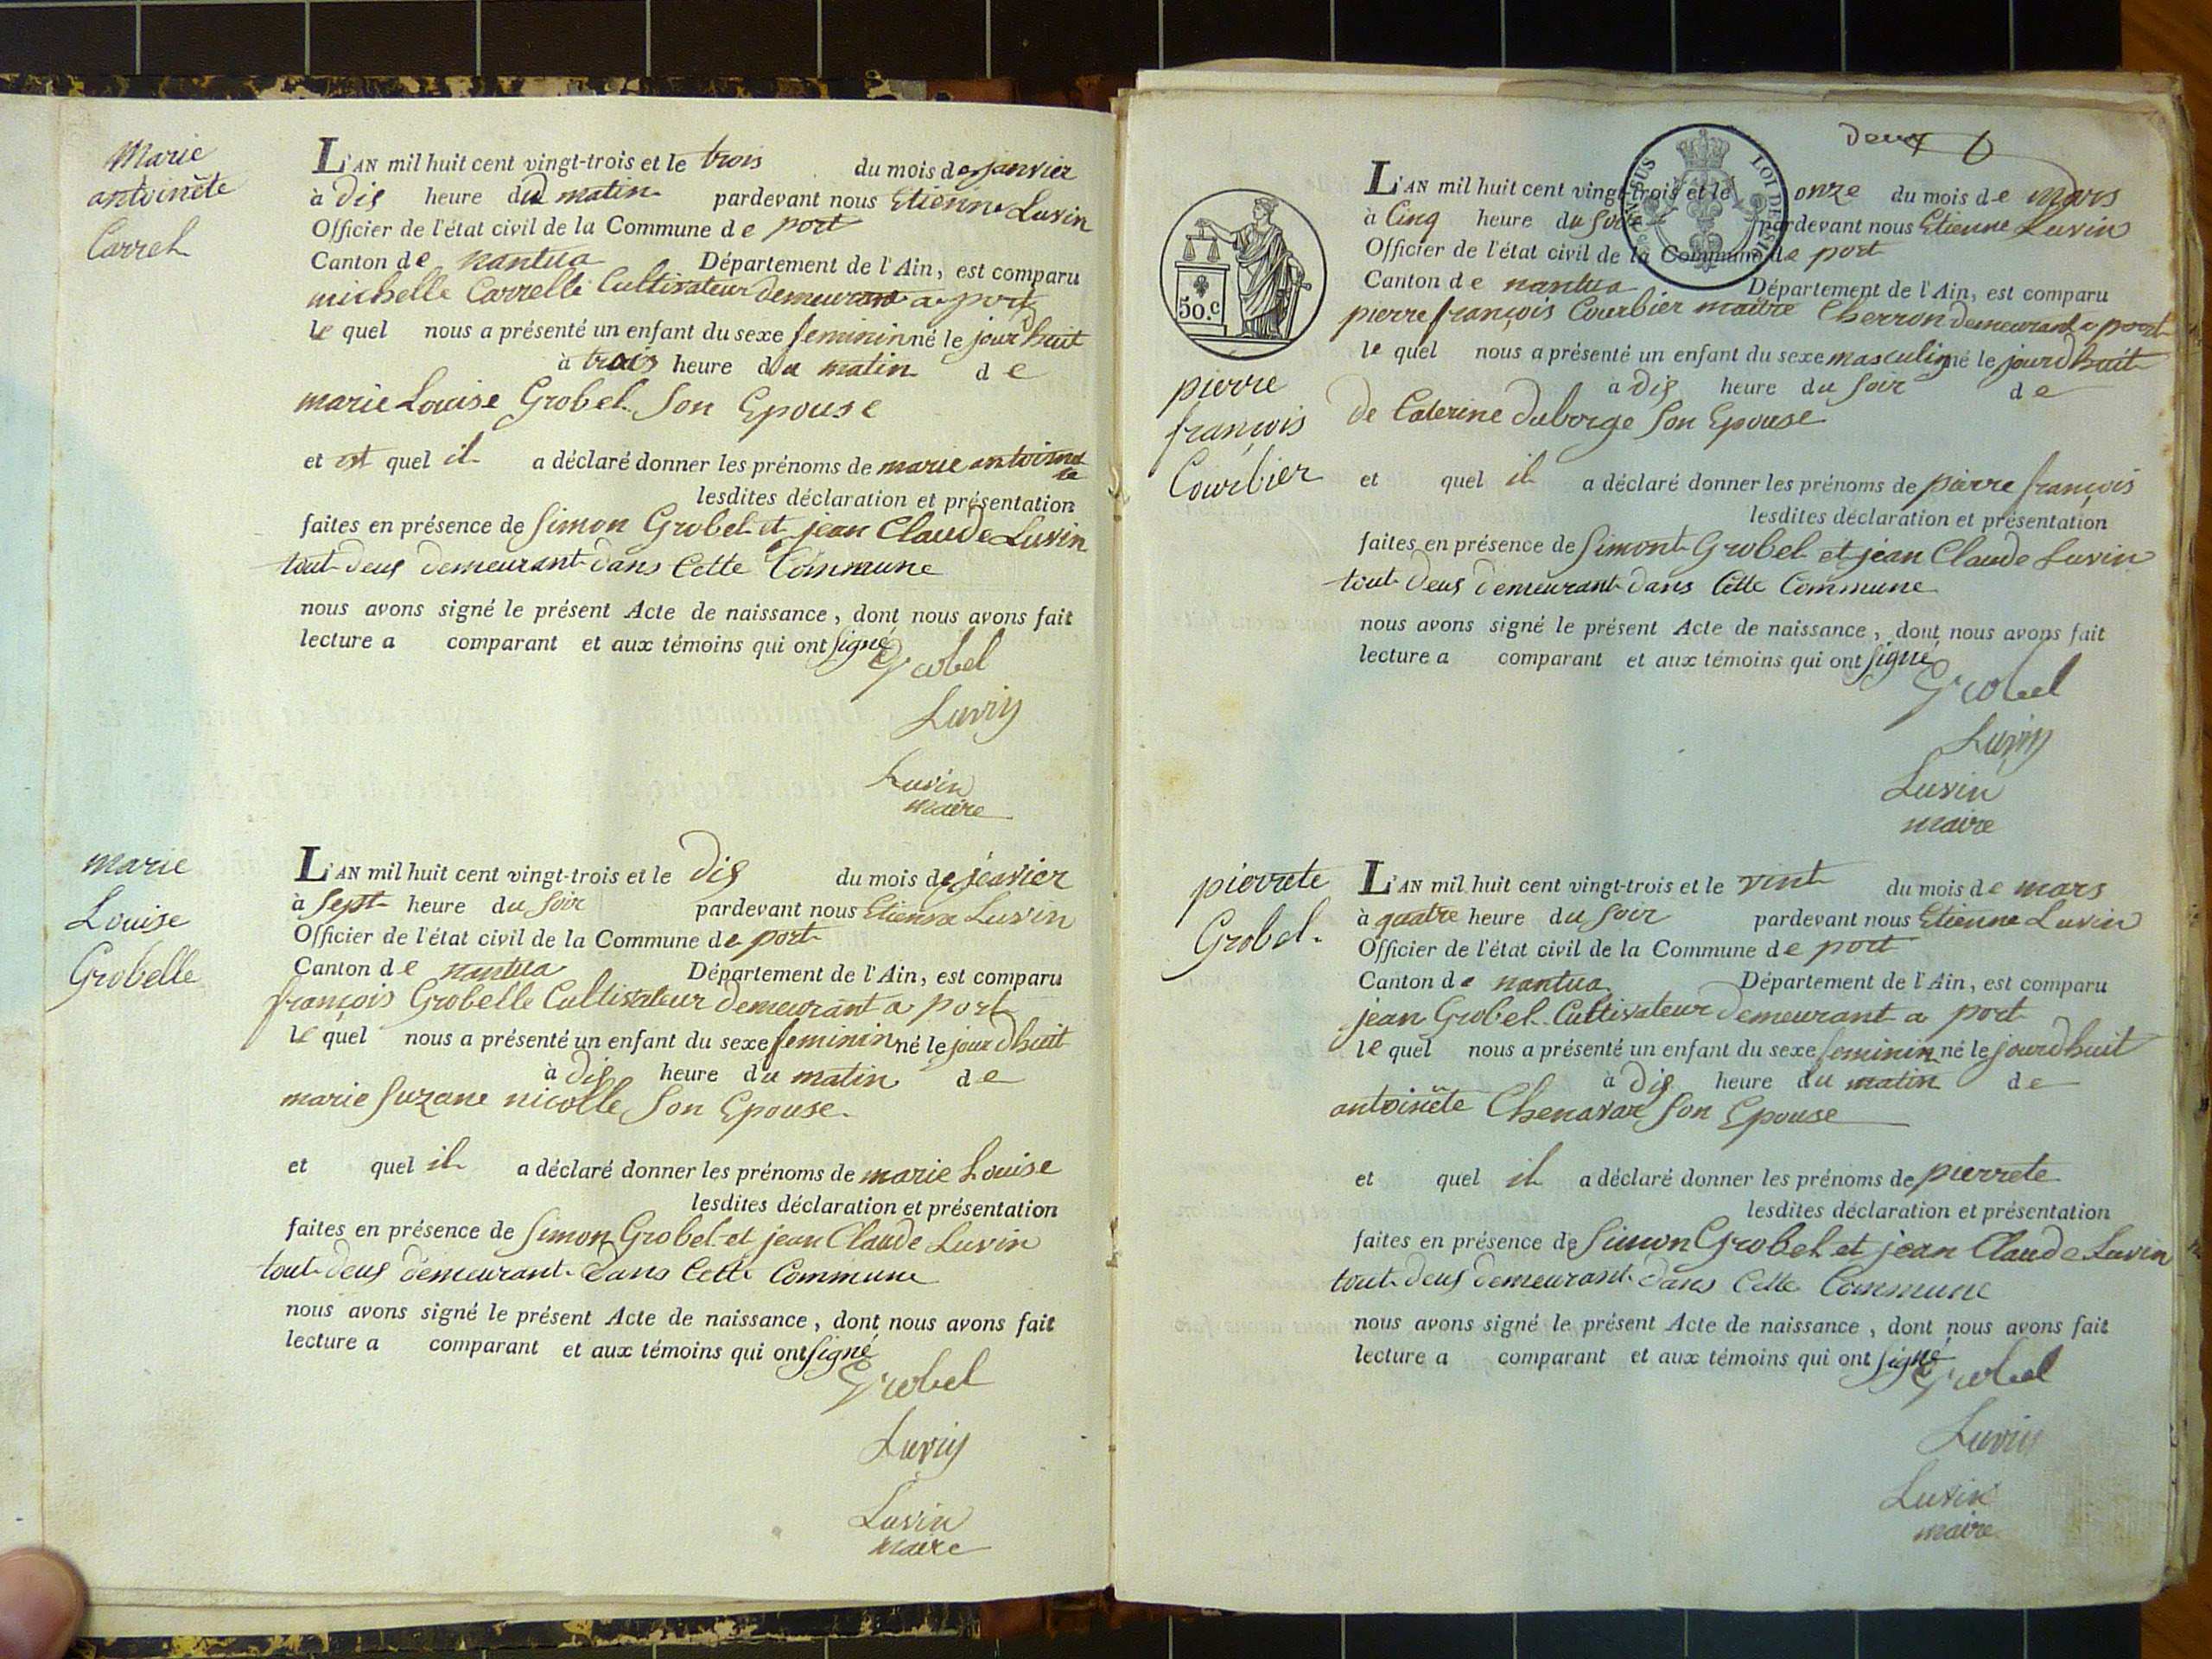 Marie
antoinête
Carrel
L'AN mil huit cent vingt-trois et le trois du mois de janvier
à dis heure du matin pardevant nous Etienne Luvin
Officier de l'état civil de la Commune de port
Canton de nantua Département de l'Ain, est comparu
michelle Carrelle Cultivateur demeurant a port
le quel nous a présenté un enfant du sexe feminin né le jourdhuit
à trois heure du matin de
marie Louise Grobel Son Epouse
et est quel il a déclaré donner les prénoms de marie antoinet
te
lesdites déclaration et présentation
faites en présence de Simon Grobel et jean Claude Luvin
tout deus demeurant dans Cette Commune
nous avons signé le présent Acte de naissance, dont nous avons fait
lecture a comparant et aux témoins qui ont Signé
Grobel
Luvin
Luvin
maire
marie
Louise
Grobelle
L'AN mil huit cent vingt-trois et le dis du mois de jeavier
à Sept heure du Soir pardevant nous Etienne Luvin
Officier de l'état civil de la Commune de port
Canton de nantua Département de l'Ain, est comparu
françois Grobelle Cultivateur demeurant a port
le quel nous a présenté un enfant du sexe feminin né le jourdhuit
à dis heure du matin de
marie Suzane nicolle Son Epouse
et quel il a déclaré donner les prénoms de marie Louise
lesdites déclaration et présentation
faites en présence de Simon Grobel et jean Claude Luvin
tout deus demeurant dans Cette Commune
nous avons signé le présent Acte de naissance, dont nous avons fait
lecture a comparant et aux témoins qui ont Signé
Grobel
Luvin
Luvin
maire
deux
50.c
LOI DE
L'AN mil huit cent vingt-trois et le onze du mois de mars
à Cinq heure du Soir pardevant nous Etienne Luvin
Officier de l'état civil de la Commune de port
Canton de nantua Département de l'Ain, est comparu
pierre françois Courbier maitre Cherron demeurant a port
le quel nous a présenté un enfant du sexe masculin né le jourdhuit
à dis heure du Soir de
de Caterine duborge Son Epouse
pierre
françois
Courbier
et quel il a déclaré donner les prénoms de pierre françois
lesdites déclaration et présentation
faites en présence de Simont Grobel et jean Claude Luvin
tout deus demeurant dans Cette Commune
nous avons signé le présent Acte de naissance, dont nous avons fait
lecture a comparant et aux témoins qui ont Signé
Grobel
Luvin
Luvin
maire
pierrete
Grobel
L'AN mil huit cent vingt-trois et le vint du mois de mars
à quatre heure du Soir pardevant nous Etienne Luvin
Officier de l'état civil de la Commune de port
Canton de nantua Département de l'Ain, est comparu
jean Grobel Cultivateur demeurant a port
le quel nous a présenté un enfant du sexe feminin né le jourdhuit
à dis heure du matin de
antoinête Chenavar Son Epouse
et quel il a déclaré donner les prénoms de pierrete
lesdites déclaration et présentation
faites en présence de Simon Grobel et jean Claude Luvin
tout deus demeurant dans Cette Commune
nous avons signé le présent Acte de naissance, dont nous avons fait
lecture a comparant et aux témoins qui ont signé
Grobel
Luvin
Luvin
maire